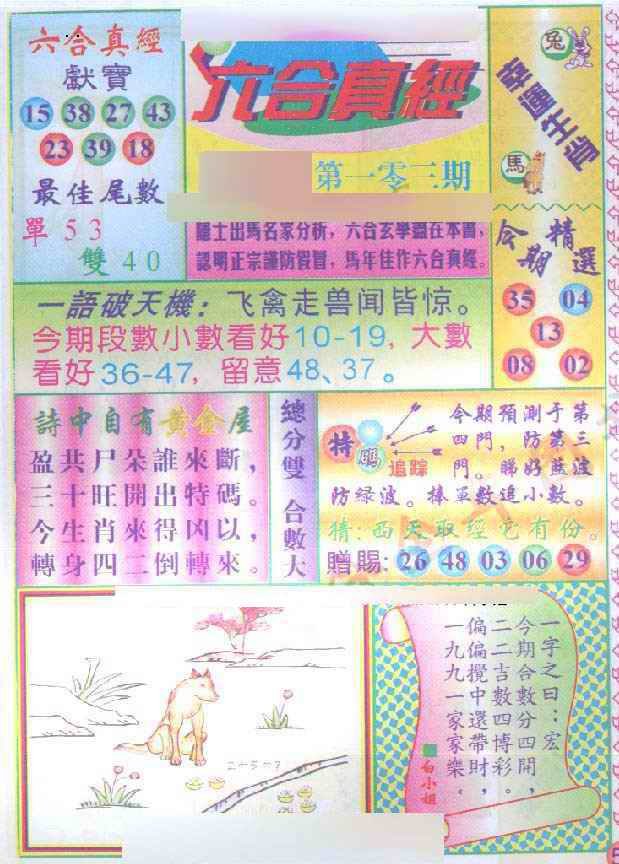 六合真經
獻寶
15 38 27 43
23 39 18
最佳尾數
單 5 3
雙 4 0
六合真經
第一零三期
隱士出馬名家分析，六合玄學盡在本書，
認明正宗謹防假冒，馬年佳作六合真經。
幸運生肖
兔
馬
今期精選
35 04
13
08 02
一語破天機：飞禽走兽闻皆惊。
今期段數小數看好10-19，大數
看好36-47，留意48、37。
詩中自有黃金屋
盈共尸朵誰來斷，
三十旺開出特碼。
今生肖來得凶以，
轉身四二倒轉來。
總分雙 合數大
特碼
追踪
今期預測于第
四門，防第三
門。睇好藍波
防綠波。捧單數追小數。
猜：西天取經它有份。
贈賜：26 48 03 06 29
一字之曰：宏
今期合數分四開，
二二吉數四博彩。
偏偏攪中還帶財，
一九九一家家樂。
白小姐
二十五十?